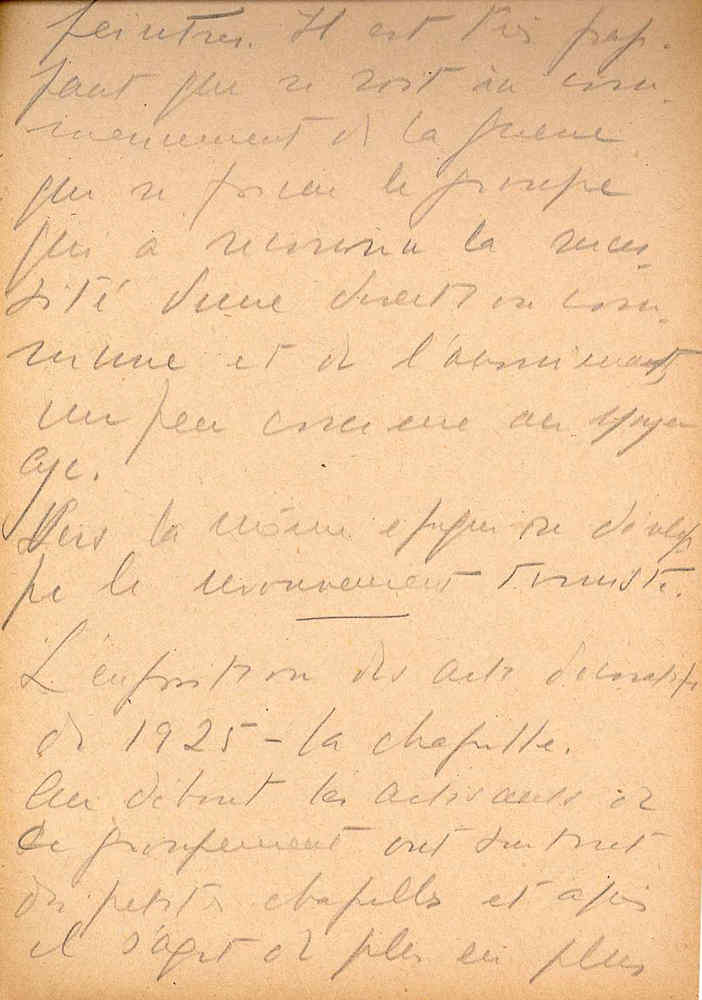 peintres. Il est très frap-
pant que ce soit au com-
mencement de la guerre
que se forme le groupe
qui a reconnu la néces-
sité d'une direction com-
mune et de l'anonimat,
un peu comme au moyen
age.
Vers la même epoque se dévelop
pe le mouvement tomiste.
L'exposition des arts décoratifs
de 1925 - la chapelle.
Au début les artisants de
ce groupement ont surtout
des petites chapelles et après
il s'agit de plus en plus